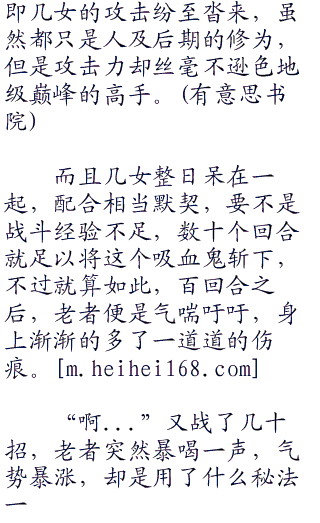 即几女的攻击纷至沓来，虽
然都只是人及后期的修为，
但是攻击力却丝毫不逊色地
级巅峰的高手。(有意思书
院)
而且几女整日呆在一
起，配合相当默契，要不是
战斗经验不足，数十个回合
就足以将这个吸血鬼斩下，
不过就算如此，百回合之
后，老者便是气喘吁吁，身
上渐渐的多了一道道的伤
痕。[m.heihei168.com]
“啊...”又战了几十
招，老者突然暴喝一声，气
势暴涨，却是用了什么秘法
一